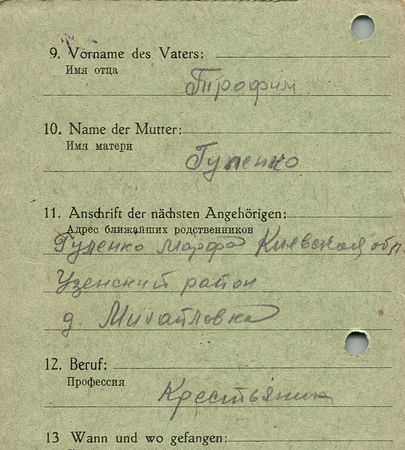 9. Vorname des Vaters:
Имя отца
Трофим
10. Name der Mutter:
Имя матери
Гуленко
11. Anschrift der nächsten Angehörigen:
Адрес ближайших родственников
Гуленко Марфа Киевская обл.
Узенский район
д. Михайловка
12. Beruf:
Профессия
Крестьянин
13 Wann und wo gefangen: